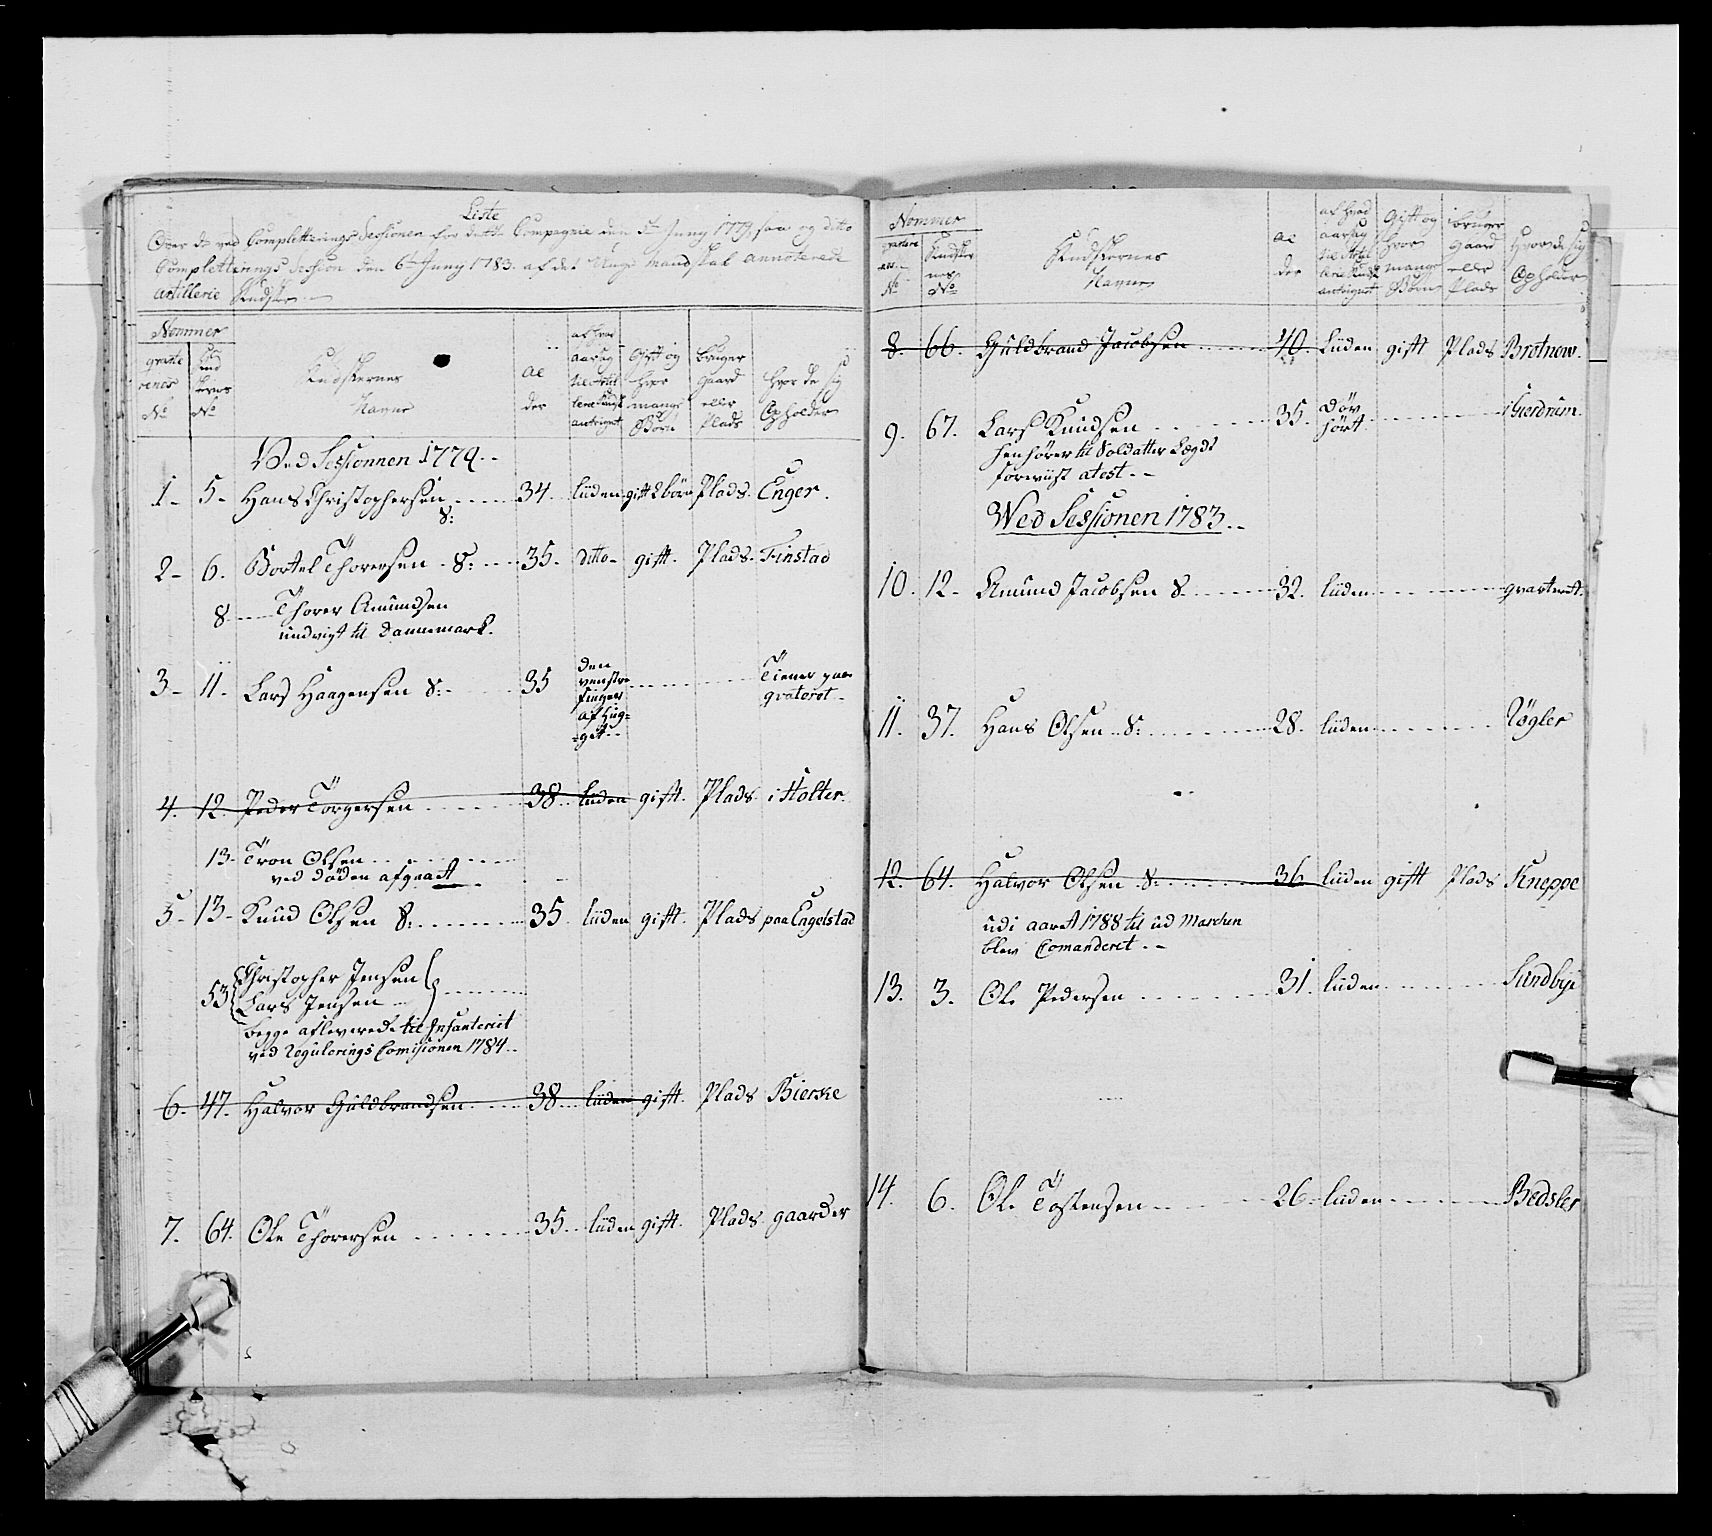 Liste
Over de ved Completterings Sessionen for dette Compagnie den 5te Juny 1779, saa og ditto
Completterings Session den 6te Juny 1783. af det Unge Mandskab annoterede
Artillerie Kudsker
Nommer
Kudskernes
Navne
al
der
af hvad
aarsag
til Artil
lerie Kudsk
antegnet
Gift og
hvor
mange
Børn
bruger
Gaard
eller
Plads
hvor de sig
Opholder
No
No
Ved Sessionnen 1779.
1- 5- Hans Christophersen 34. liiden gift 2 børn Plads. Enger.
S:
2- 6. Bortel Thorersen. S: 35. ditto- gift. Plads. Finstad
8. Thorer Amundsen
undvigt til Dannemark.
3- 11- Lars Haagensen S: 35 den venstre finger af hug-get Tiener paa qvateret
4. 12. Peder Torgersen 38. liiden gift. Plads i Holter.
13- Tron Olsen
ved døden afgaaet
5- 13- Knud Olsen S: 35. liiden gift. Plads paa Engelstad
53 Christopher Jensen
Lars Jensen
begge afleverede til Infanteriet
ved Regulerings Comisionen 1784.
6- 47. Halvor Guldbrandsen 38. liiden gift. Plads Bierke
7. 64. Ole Thorersen 35. liiden gift. Plads gaarder
Nommer
No
No
Kudskernes
Navne
al
der
af hvad
aarsag
til Artil
lerie Kudsk
antegnet
Gift og
hvor
mange
Børn
bruger
Gaard
eller
Plads
hvor de sig
Opholder
8. 66. Guldbrand Jacobsen 40. liiden gift Plads Brotnow.
9. 67. Lars Knudsen 35. Døv hørt i Gierdrum.
henhører til Soldatter Lægd
foreviist atest.
Wed Sessionen 1783.
10. 12- Amund Jacobsen S. 32. liiden qvarteret.
11. 37. Hans Olsen S: 28. liiden Røgler
12. 64. Halvor Olsen S. 36 liiden gift Plads Kneppe
udi aaret 1788 til ud Marchen
blev Comanderet.
13. 3. Ole Pedersen 31. liiden Sundbye
14. 6. Ole Tostensen 26- liiden Bedsler